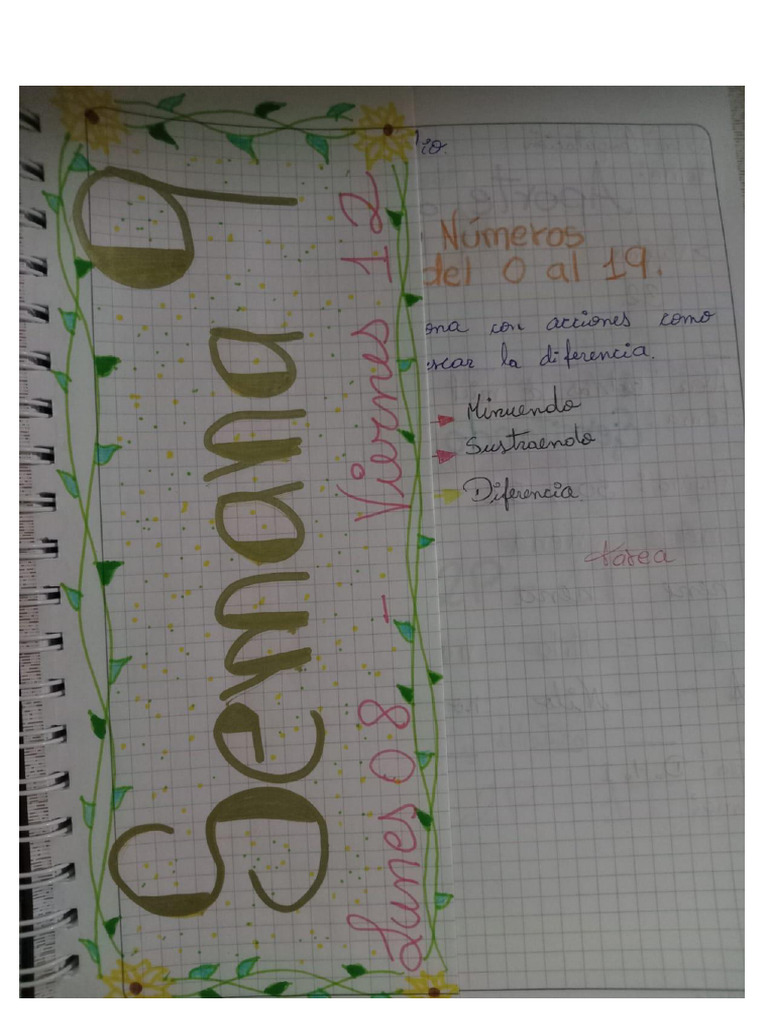 Semana 9
Lunes 08 - Viernes 12
Números
del 0 al 19.
con acciones como
la diferencia.
Minuendo
Sustraendo
Diferencia
tarea